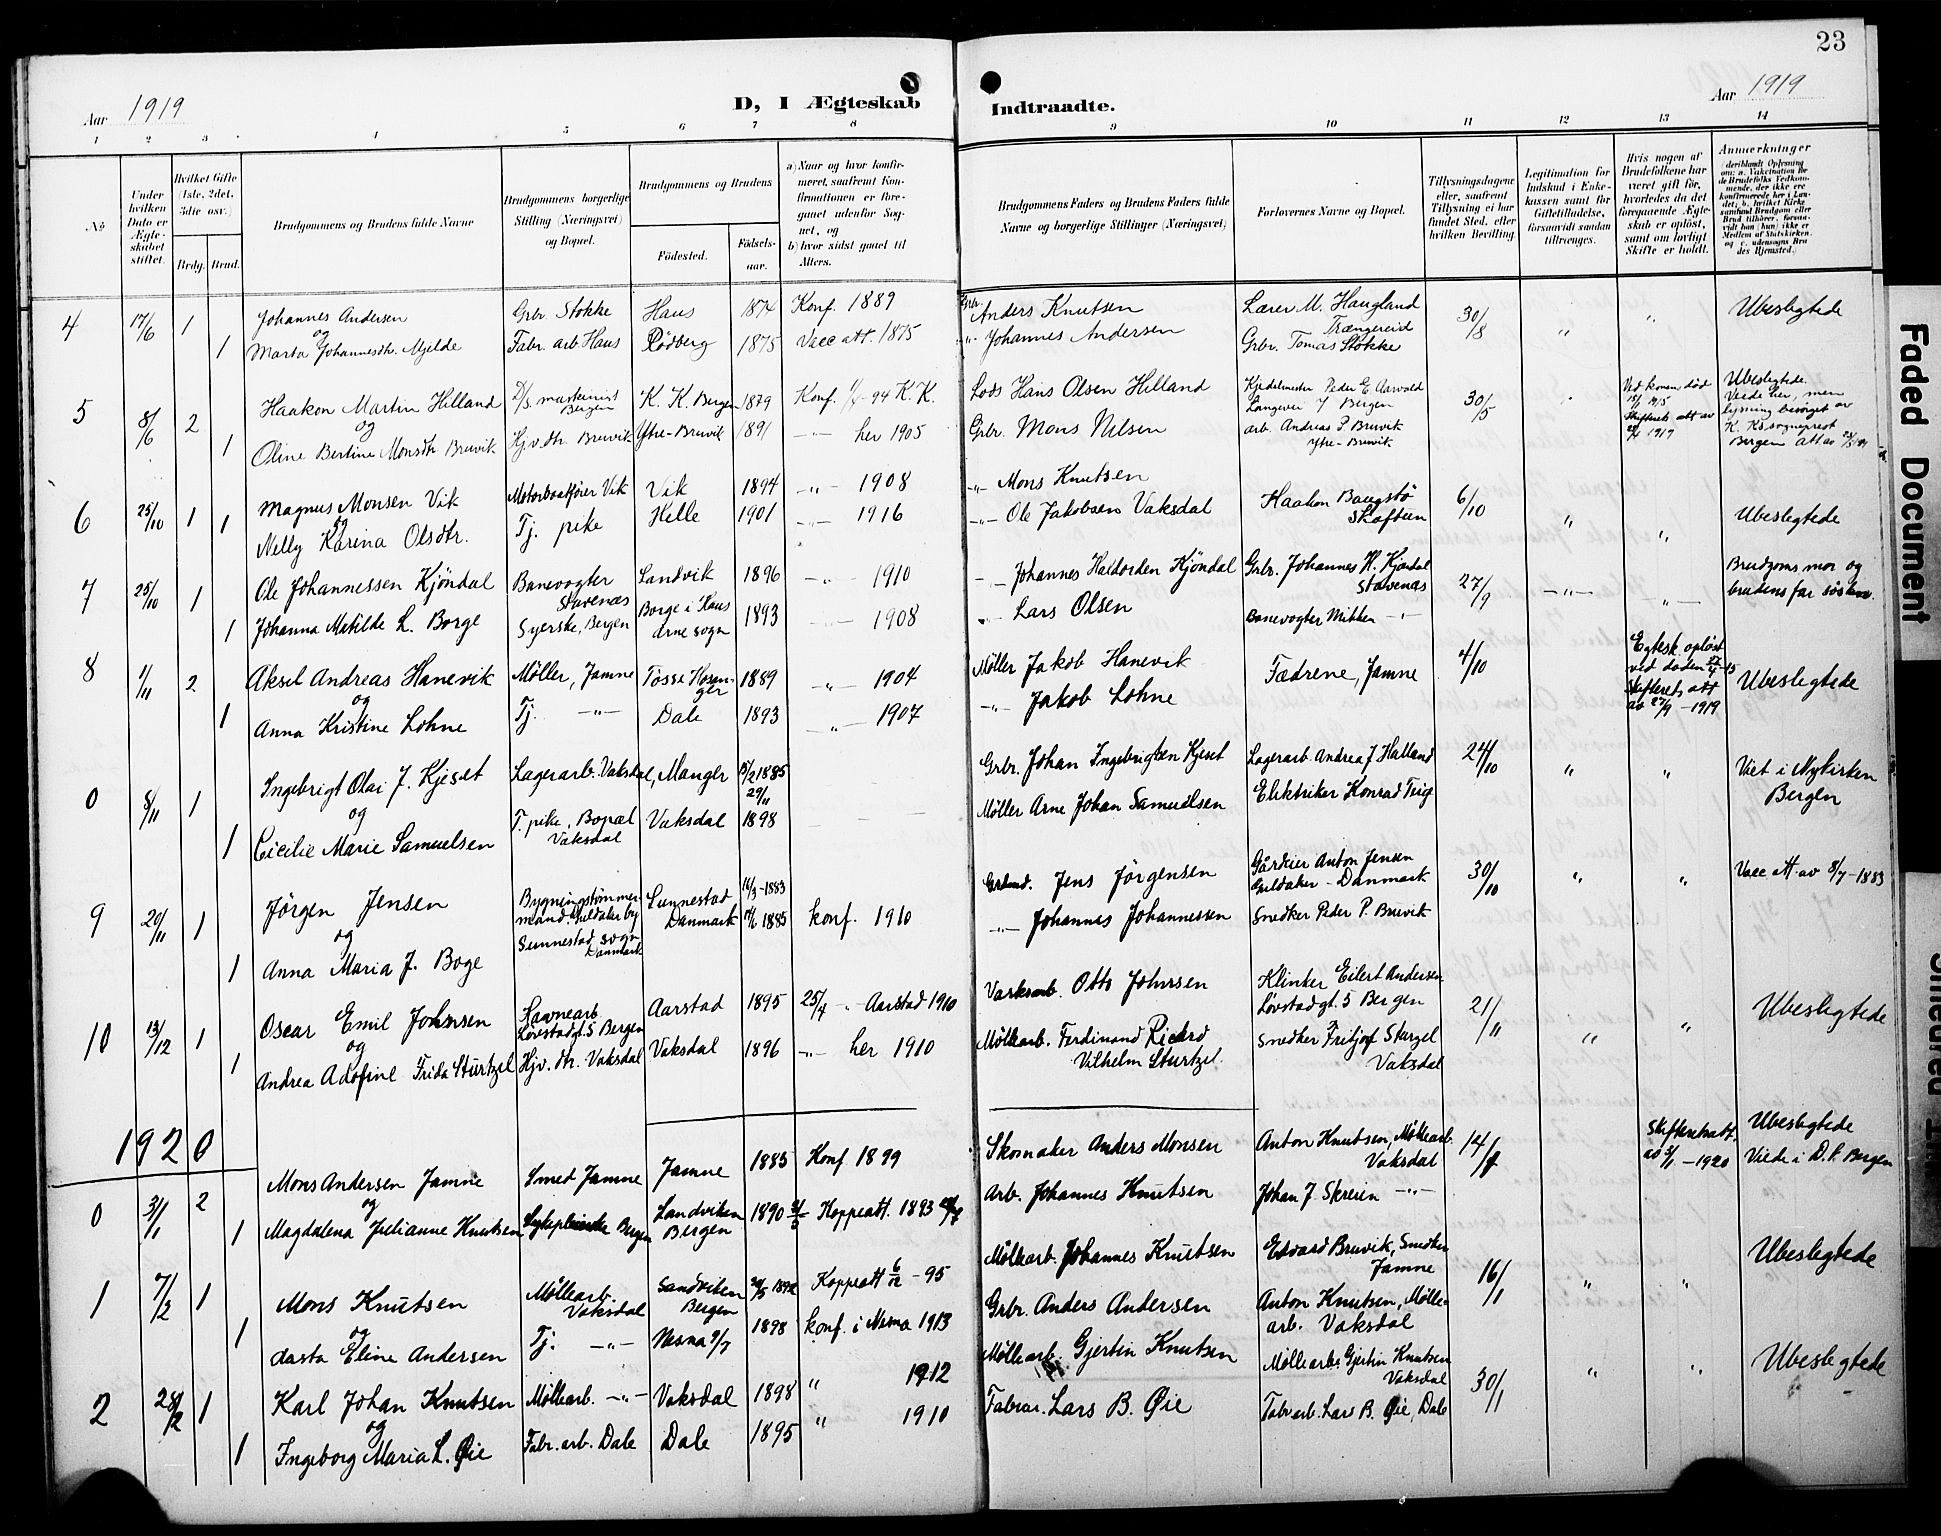 23
Aar 1919
D, I Ægteskab
Indtraadte.
Aar 1919
1 2 3 4 5 6 7 8 9 10 11 12 13 14
No
Under hvilken Dato er Ægteskabet stiftet.
Hvilket Gifte (1ste, 2det, 3die osv.)
Brdg. Brud.
Brudgommens og Brudens fulde Navne
Brudgommens borgerlige Stilling (Næringsvei) og Bopæl.
Brudgommens og Brudens
Fødested.
Fødselsaar.
a) Naar og hvor konfirmeret, saafremt Konfirmationen er foregaaet udenfor Sognet, og
b) hvor sidst gaaet til Alters.
Brudgommens Faders og Brudens Faders fulde Navne og borgerlige Stillinger (Næringsvei)
Forlovernes Navne og Bopæl.
Tillysningsdagene eller, saafremt Tillysning ei har fundet Sted, efter hvilken Bevilling
Legitimation for Indskud i Enkekassen samt for Giftetilladelse, forsaavidt saadan tiltrænges.
Hvis nogen af Brudefolkene har været gift før, hvorledes da det foregaaende Ægteskab er opløst, samt om lovligt Skifte er holdt.
Anmærkninger
4 17/6 1 Johannes Andersen Grbr. Stokke Haus 1874 Konf. 1889 Grbr. Anders Knutsen Lærer M. Haugland Trængereid 30/8 " " Ubeslegtede
og
1 Marta Johannesdtr. Mjelde Fabr. arb Haus Rödberg 1875 Vacc att. 1875 " Johannes Andersen Grbr. Tomas Stokke
5 8/6 2 Haakon Martin Helland D/S. maskinist Bergen K. K. Bergen 1879 Konf. -94 K. K. Lods Hans Olsen Helland Kjedelmester Peder E Aarvold Bergen 30/5 " Ved konen död Skifterets att av 1919 Ubeslegtede.
og
1 Oline Bertine Monsdtr Bruvik Hj.v.dtr. Bruvik Ytre-Bruvik 1891 -"- her 1905 Grbr. Mons Nilsen arb. Andreas P Bruvik Ytre-Bruvik Viede her, men lysning besörget av K. Ks sogneprest Bergen att av
6 25/10 1 Magnus Monsen Vik Motorbaatfører Vik Vik 1894 -"- 1908 -"- Mons Knutsen Haakon Baugstö Skoftun 6/10 " " Ubeslegtede
og
1 Nelly Karina Olsdtr. Tj. pike Helle 1901 -"- 1916 -"- Ole Jakobsen Vaksdal
7 25/10 1 Ole Johannessen Kjöndal Banevogter Stavenæs Landvik 1896 -"- 1910 -"- Johannes Haldorsen Kjöndal Grbr. Johannes H. Kjöndal Stavenæs 27/9 -"- -"- Brudgoms mor og brudens far søsken.
1 Johanna Matilde L. Borge Syerske, Bergen Borge i Haus Arne sogn 1893 1908 Lars Olsen Banevogter Mikken -"-
8 1/11 2 Aksel Andreas Hanevik Møller, Jamne Tösse Hosanger 1889 -"- 1904 Møller Jakob Hanevik Fædrene, Jamne 4/10 Egtesk. opløst ved döden Skifterets att av 27/9 -1919 Ubeslegtede
og
1 Anna Kristine Lohne Tj. -"- Dale 1893 -"- 1907 -"- Jakob Lohne
0 8/11 1 Ingebrigt Olai J. Kjeset Lagerarb. Vaksdal, Manger 15/2 1885 Grbr. Johan Ingebrigtsen Kjeset Lagerarb. Andrea J Hatland 24/10 " " Viet i Nykirken Bergen
og
1 Cecilie Marie Samuelsen T. pike, Bopæl Vaksdal Vaksdal 29/11 1898 Møller Arne Johan Samuelsen Elektriker Konrad Teig
9 20/11 1 Jörgen Jensen Bygningstømmermand Guldaker by Sunnestad sogn Danmark Sunnestad Danmark 16/3-1883 Grbmd. Jens Jörgensen Gårdeier Anton Jensen Guldaker - Danmark 30/10 " " Vacc att. av 8/7-1883
og
1 Anna Maria J. Boge 14/6 1885 konf. 1910 -"- Johannes Johannessen Snedker Peder P. Bruvik
10 13/12 1 Oscar Emil Johnsen Havnearb. Løvstadgt. 5 Bergen Aarstad 1895 25/4 -"- Aarstad 1910 Varksarb. Otto Johnsen Klinker Eilert Andersen Løvstadgt. 5 Bergen 21/11 " " Ubeslegtede
og
1 Andrea Adofine Frida Sturtzel Hjv. dtr. Vaksdal Vaksdal 1896 -"- her 1910 Møllearb. Ferdinand Rickard Vilhelm Sturtzel. Snedker Fritjof Sturzel Vaksdal
1920
0 3/1 2 Mons Andersen Jamne Smed Jamne Jamne 1885 Konf 1899 Skomaker Anders Monsen Anton Knutsen, Møllearb. Vaksdal 14/ Skifteretsatt. av 3/1 -1920 Ubeslegtede Viede i D. k. Bergen
og
1 Magdalena Julianne Knutsen Sykepleierske Bergen Landviken Bergen 1890 Koppeatt. 1893 Arb. Johannes Knutsen Johan J. Skreien -"-
1 7/2 1 Mons Knutsen Møllearb. Vaksdal Sandviken Bergen 1892 Koppeatt 6/12 -95 Møllearb. Johannes Knutsen Edvard Bruvik, Snedker Jamne 16/1 " " Ubeslegtede
og
1 Aasta Eline Andersen Tj. -"- Nesna 9/7 1898 konf. i Nesna 1913 Grbr. Anders Andersen Anton Knutsen, Møllearb. Vaksdal
2 28/2 1 Karl Johan Knutsen Møllearb. -"- Vaksdal 1898 " 1912 Møllearb. Gjertin Knutsen Møllearb. Gjertin Knutsen Vaksdal 30/1 " " Ubeslegtede
og
1 Ingeborg Maria L. Øie Fabr. arb. Dale Dale 1895 " 1910 Fabrar. Lars B. Øie Fabr arb. Lars B. Øie, Dale
Faded Document